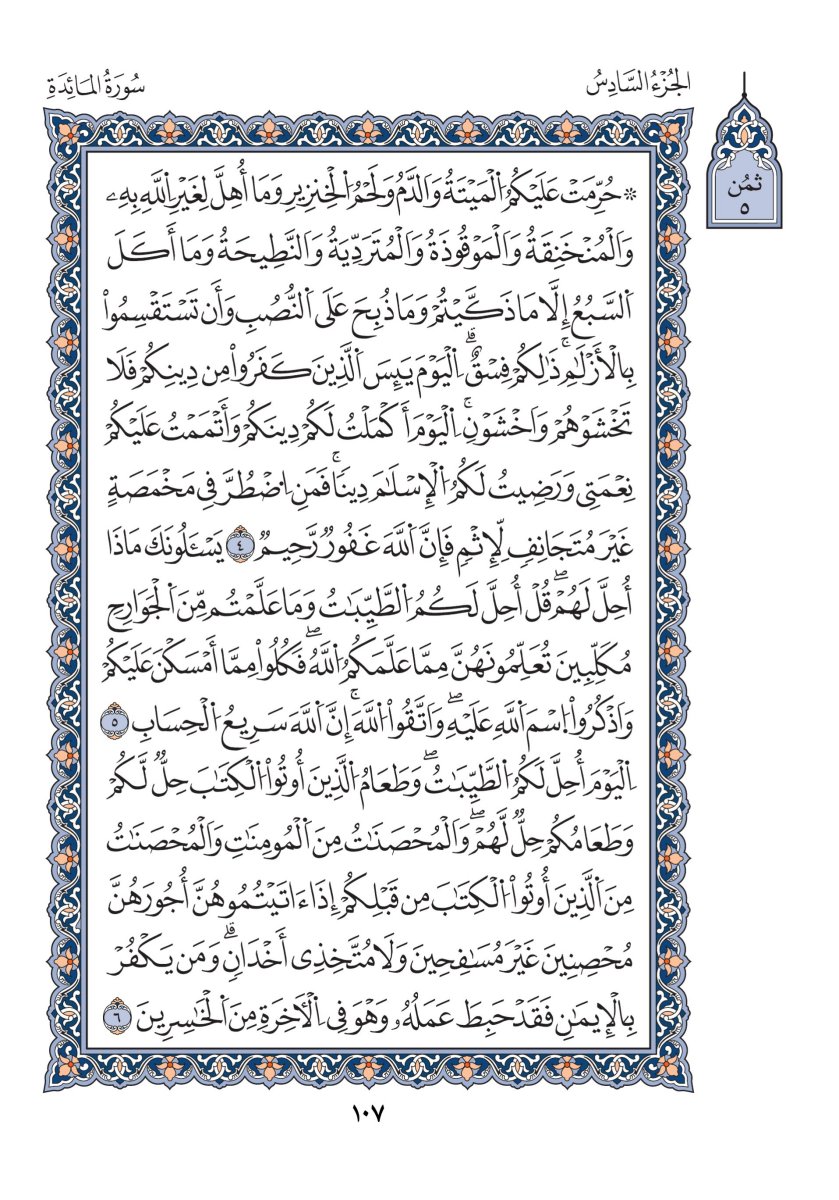 الجُزْءُ السَّادِسُ
سُورَةُ المَائِدَةِ
ثُمُن
٥
۞ حُرِّمَتْ عَلَيْكُمُ اُ۬لْمَيْتَةُ وَالدَّمُ وَلَحْمُ اُ۬لْخِنزِيرِ وَمَا أُهِلَّ لِغَيْرِ اِ۬للَّهِ بِهِۦ
وَالْمُنْخَنِقَةُ وَالْمَوْقُوذَةُ وَالْمُتَرَدِّيَةُ وَالنَّطِيحَةُ وَمَا أَكَلَ
اَ۬لسَّبُعُ إِلَّا مَا ذَكَّيْتُمْ وَمَا ذُبِحَ عَلَى اَ۬لنُّصُبِ وَأَن تَسْتَقْسِمُواْ
بِالْأَزْلَٰمِۚ ذَٰلِكُمْ فِسْقٌۗ اِ۬لْيَوْمَ يَئِسَ اَ۬لَّذِينَ كَفَرُواْ مِن دِينِكُمْ فَلَا
تَخْشَوْهُمْ وَاخْشَوْنِۚ اِ۬لْيَوْمَ أَكْمَلْتُ لَكُمْ دِينَكُمْ وَأَتْمَمْتُ عَلَيْكُمْ
نِعْمَتِى وَرَضِيتُ لَكُمُ اُ۬لْإِسْلَٰمَ دِينٗاۚ فَمَنِ اِ۟ضْطُرَّ فِى مَخْمَصَةٍ
غَيْرَ مُتَجَانِفٖ لِّإِثْمٖ فَإِنَّ اَ۬للَّهَ غَفُورٞ رَّحِيمٞ ٤ يَسْـَٔلُونَكَ مَاذَا
أُحِلَّ لَهُمْۖ قُلْ أُحِلَّ لَكُمُ اُ۬لطَّيِّبَٰتُ وَمَا عَلَّمْتُم مِّنَ اَ۬لْجَوَارِحِ
مُكَلِّبِينَ تُعَلِّمُونَهُنَّ مِمَّا عَلَّمَكُمُ اُ۬للَّهُۖ فَكُلُواْ مِمَّا أَمْسَكْنَ عَلَيْكُمْ
وَاذْكُرُواْ اُ۪سْمَ اَ۬للَّهِ عَلَيْهِۖ وَاتَّقُواْ اُ۬للَّهَۚ إِنَّ اَ۬للَّهَ سَرِيعُ اُ۬لْحِسَابِ ٥
اِ۬لْيَوْمَ أُحِلَّ لَكُمُ اُ۬لطَّيِّبَٰتُۖ وَطَعَامُ اُ۬لَّذِينَ أُوتُواْ اُ۬لْكِتَٰبَ حِلّٞ لَّكُمْ
وَطَعَامُكُمْ حِلّٞ لَّهُمْۖ وَالْمُحْصَنَٰتُ مِنَ اَ۬لْمُومِنَٰتِ وَالْمُحْصَنَٰتُ
مِنَ اَ۬لَّذِينَ أُوتُواْ اُ۬لْكِتَٰبَ مِن قَبْلِكُمْ إِذَا ءَاتَيْتُمُوهُنَّ أُجُورَهُنَّ
مُحْصِنِينَ غَيْرَ مُسَٰفِحِينَ وَلَا مُتَّخِذِى أَخْدَانٖۗ وَمَن يَكْفُرْ
بِالْإِيمَٰنِ فَقَدْ حَبِطَ عَمَلُهُۥ وَهْوَ فِى اِ۬لْأٓخِرَةِ مِنَ اَ۬لْخَٰسِرِينَ ٦
١٠٧